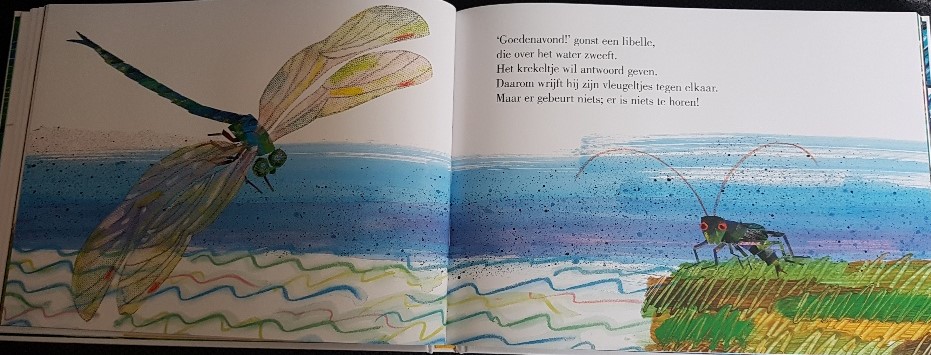 ‘Goedenavond!’ gonst een libelle,
die over het water zweeft.
Het krekeltje wil antwoord geven.
Daarom wrijft hij zijn vleugeltjes tegen elkaar.
Maar er gebeurt niets; er is niets te horen!